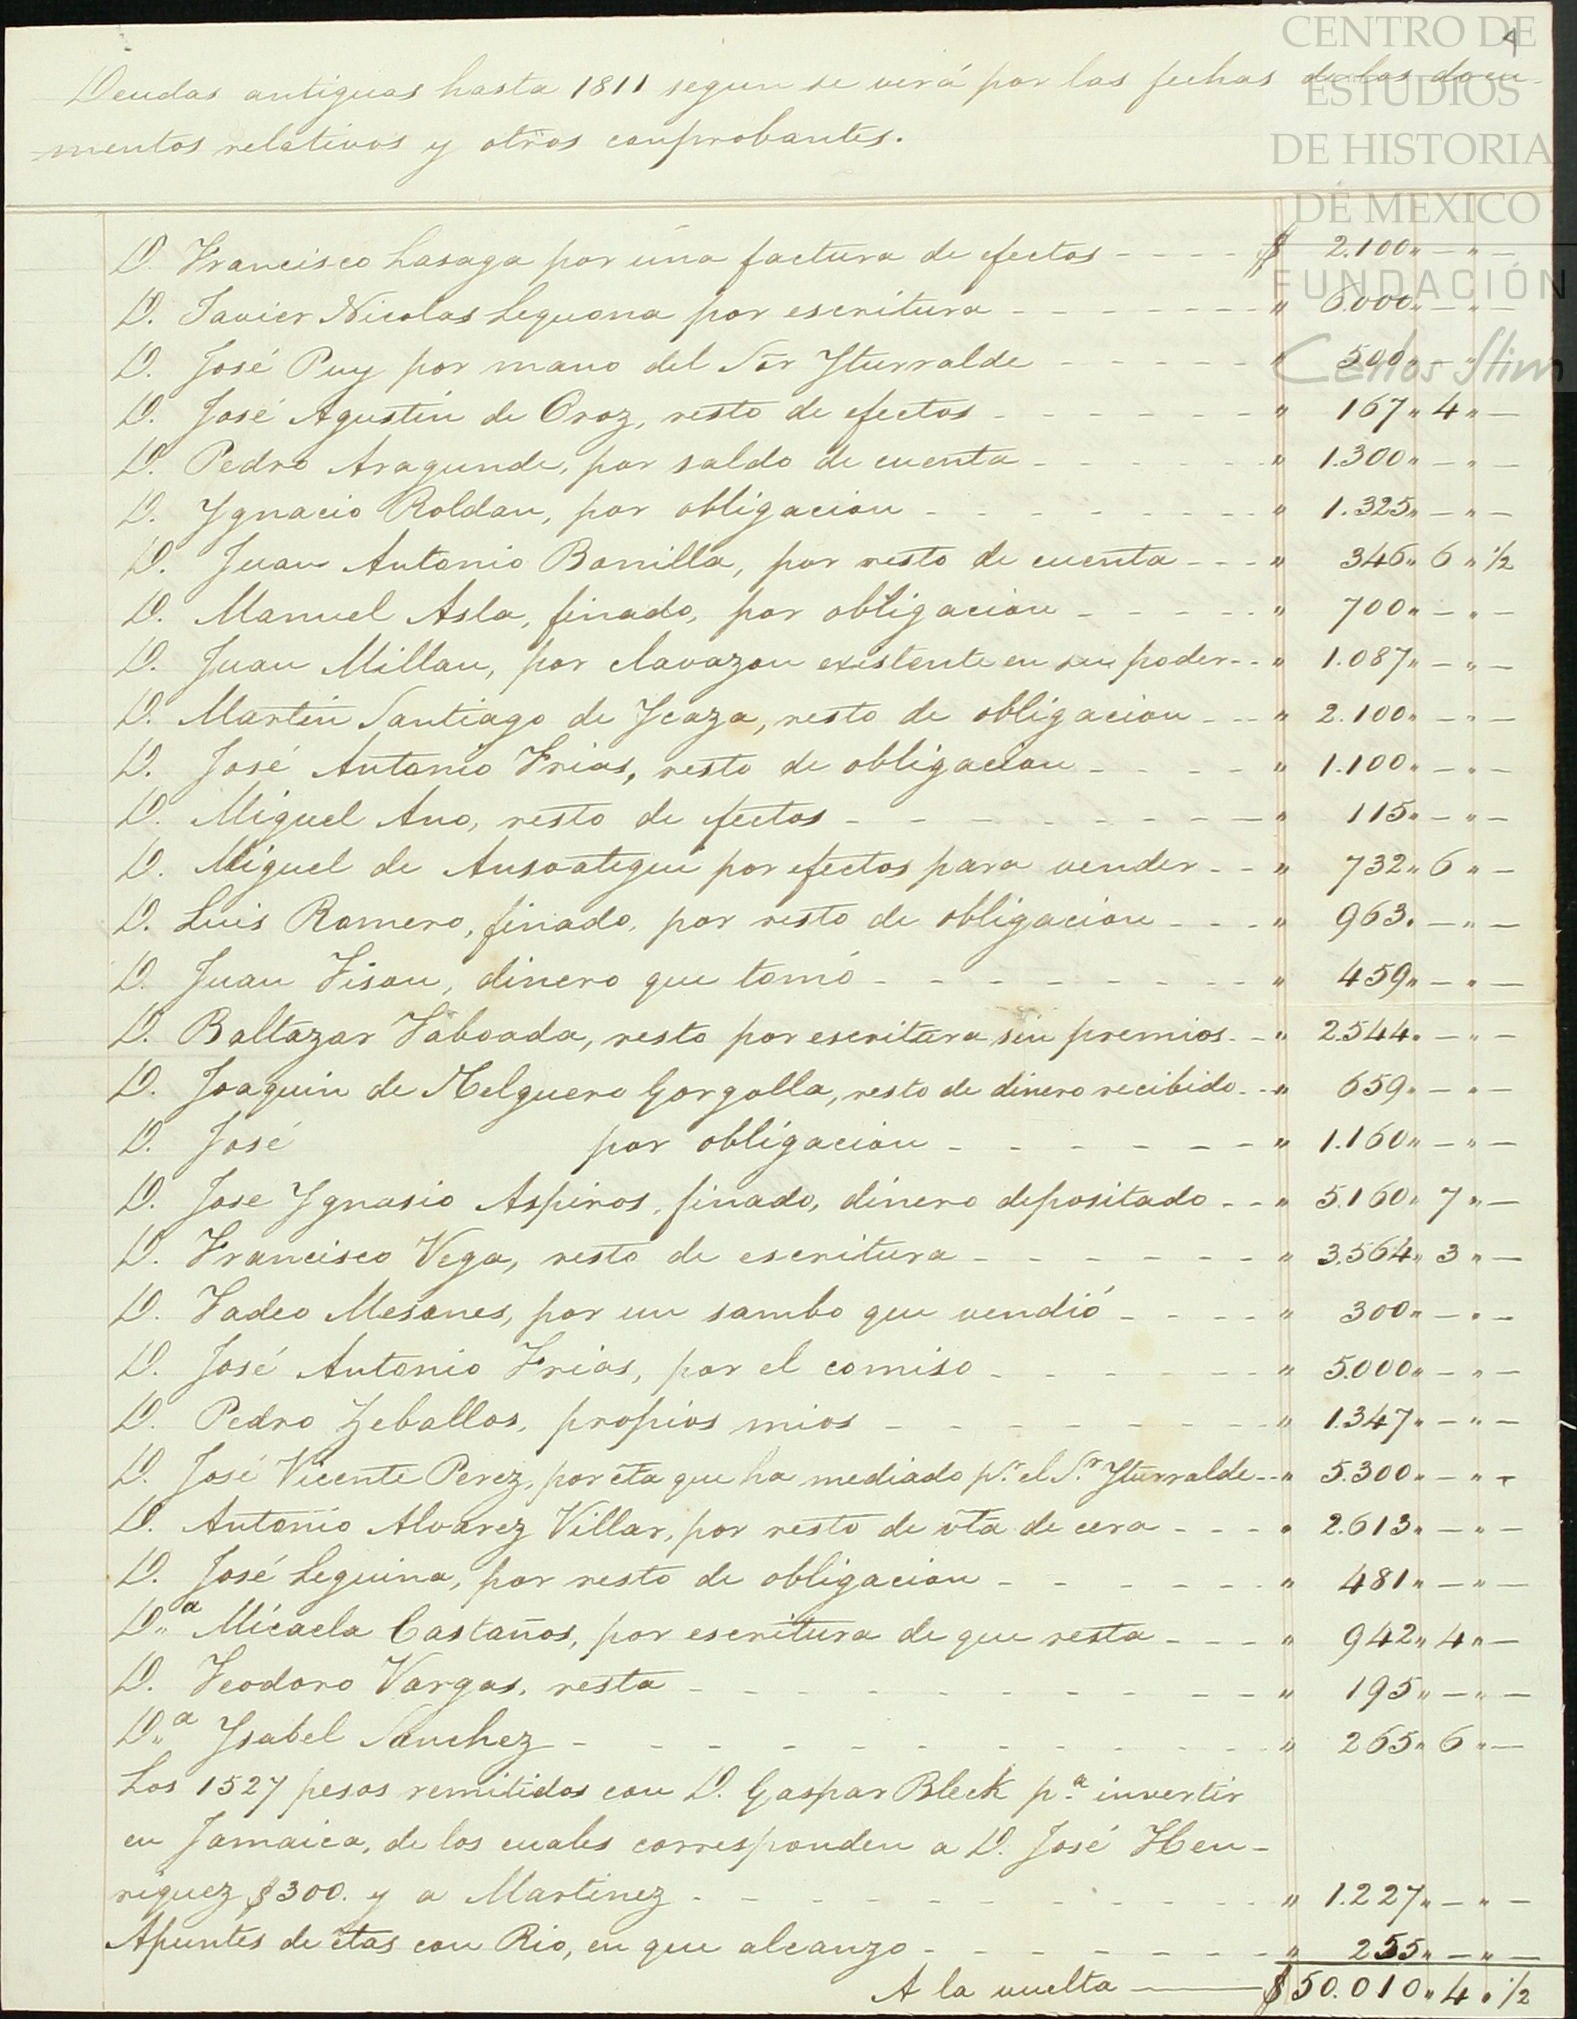 4
Deudas antiguas hasta 1811 segun se verá por las fechas de los docu-
mentos relativos y otros comprobantes.
D. Francisco Lasaga por una factura de efectos - - - - $ 2.100 " — " —
D. Javier Nicolas Leguona por escritura - - - - - - - " 6.000 " — " —
D. José Puy por mano del Sor Yturralde - - - - - - " 500 " — " —
D. José Agustin de Oroz, resto de efectos - - - - - - " 167 " 4 " —
D. Pedro Aragunde, por saldo de cuenta - - - - - - " 1.300 " — " —
D. Ygnacio Roldan, por obligacion - - - - - - - - " 1.325 " — " —
D. Juan Antonio Bonilla, por resto de cuenta - - - " 346 " 6 " 1/2
D. Manuel Asla, finado, por obligacion - - - - - " 700 " — " —
D. Juan Millan, por clavazon existente en su poder - - " 1.087 " — " —
D. Martin Santiago de Ycaza, resto de obligacion - - - " 2.100 " — " —
D. José Antonio Frias, resto de obligacion - - - - " 1.100 " — " —
D. Miguel Ano, resto de efectos - - - - - - - - " 115 " — " —
D. Miguel de Ansoategui por efectos para vender - - " 732 " 6 " —
D. Luis Romero, finado, por resto de obligacion - - - " 963 " — " —
D. Juan Tison, dinero que tomó - - - - - - - - " 459 " — " —
D. Baltazar Taboada, resto por escritura sin premios - - " 2.544 " — " —
D. Joaquin de Helguero Gorgolla, resto de dinero recibido - - " 659 " — " —
D. José por obligacion - - - - - - " 1.160 " — " —
D. Jose Ygnasio Aspiros, finado, dinero depositado - - " 5.160 " 7 " —
D. Francisco Vega, resto de escritura - - - - - - " 3.564 " 3 " —
D. Tadeo Mesones, por un sambo que vendió - - - - " 300 " — " —
D. José Antonio Frias, por el comiso - - - - - - " 5.000 " — " —
D. Pedro Zeballos, propios mios - - - - - - - - " 1.347 " — " —
D. José Vicente Perez, por cta que ha mediado pr. el Sr. Yturralde - - " 5.300 " — " —
D. Antonio Alvarez Villar, por resto de vta de cera - - - " 2.613 " — " —
D. José Leguina, por resto de obligacion - - - - - - " 481 " — " —
D.a Micaela Castaños, por escritura de que resta - - - " 942 " 4 " —
D. Teodoro Vargas, resta - - - - - - - - - - " 195 " — " —
D.a Ysabel Sanchez - - - - - - - - - - - - " 265 " 6 " —
Los 1527 pesos remitidos con D. Gaspar Bleck p.a invertir
en Jamaica, de los cuales corresponden a D. José Hen-
riquez $ 300. y a Martinez - - - - - - - - - " 1.227 " — " —
Apuntes de ctas con Rio, en que alcanzo - - - - - - - " 255 " — " —
A la vuelta — $ 50.010 " 4 " 1/2
CENTRO DE
ESTUDIOS
DE HISTORIA
DE MEXICO
FUNDACIÓN
Carlos Slim